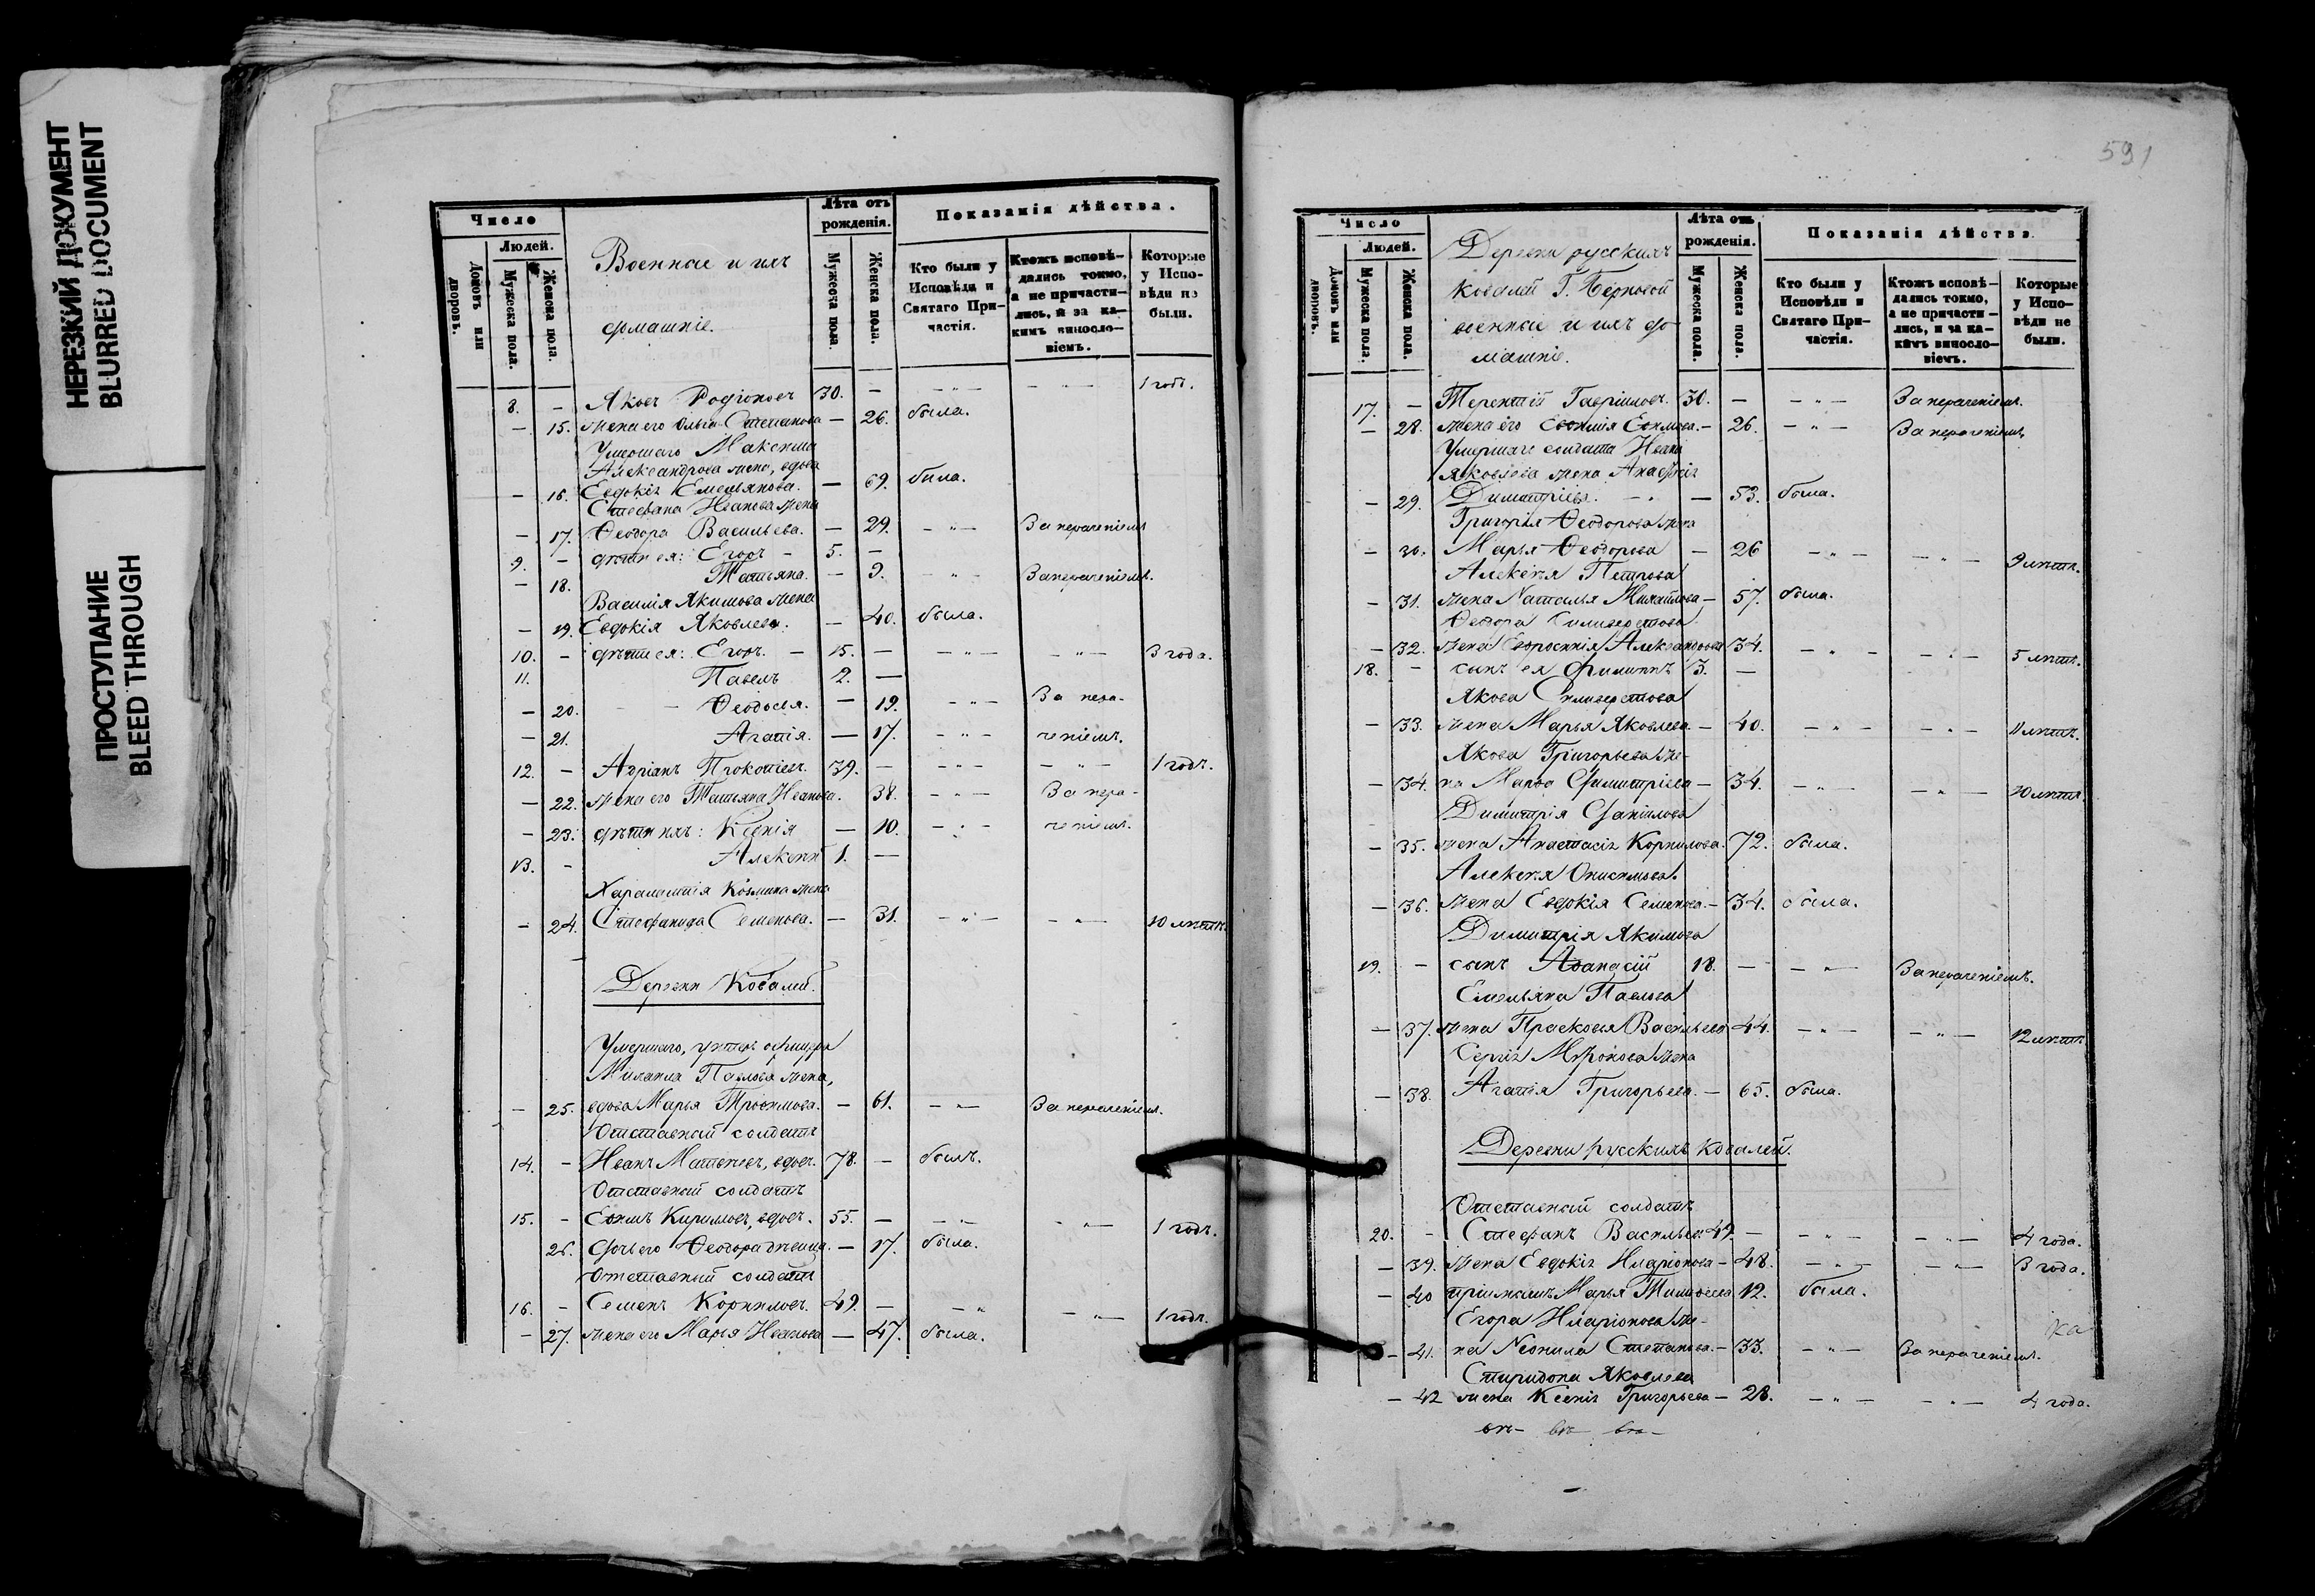 НЕРЕЗКИЙ ДОКУМЕНТ
BLURRED DOCUMENT
ПРОСТУПАНИЕ
BLEED THROUGH
Число
Людей.
Домовъ или дворовъ.
Мужеска пола.
Женска пола.
Военные и ихъ
домашніе.
Лѣта отъ рожденія.
Мужеска пола.
Женска пола.
Показанія дѣйства.
Кто были у Исповѣди и Святаго Причастія.
Ктожъ исповѣдались токмо, а не причастились, и за какимъ винословіемъ.
Которые у Исповѣди не были.
8. – Яковъ Родіоновъ 30. – – „ – – „ – 1 годъ.
– 15. жена его Ольга Степанова – 26. была.
Умершаго Максима
Александрова жена, вдова
– 16. Евдокія Емельянова. – 69. была.
Стефана Иванова жена
– 17. Ѳеодора Васильева. – 29. – „ – За нераченіемъ
9. – дѣти ея: Егоръ – 5. –
– 18. Татьяна. – 9. – „ – За нераченіемъ.
Василія Якимова жена
– 19. Евдокія Яковлева. – 40. была.
10. – дѣти ея: Егоръ. – 15. – – „ – – „ – 3 года.
11. Павелъ 2. –
– 20. – – Ѳеодосія. – 19. – „ – За нера-
– 21. Агапія. – 17. – „ – ченіемъ.
12. – Адріанъ Прокопіевъ. 39. – – „ – – „ – 1 годъ.
– 22. жена его Татьяна Иванова. 38. – „ – За нера-
– 23. дѣти ихъ: Ксенія – 10. – „ – ченіемъ.
13. – Алексѣй 1. –
Харалампія Козмина жена
– 24. Стефанида Семенова. – 31. – „ – – „ – 10 лѣтъ.
Деревни Ковалей.
Умершаго, унтеръ офицера
Павлова жена,
– 25. вдова Марья Трофимова. – 61. – „ – За нераченіемъ.
Отставный солдатъ
14. – Иванъ Матвѣевъ, вдовъ. 78. – былъ.
Отставный солдатъ
15. – Еѳимъ Кириловъ, вдовъ. 55. – – „ – – „ – 1 годъ.
26. дочь его Ѳеодора дѣвица. – 17. была.
Отставный солдатъ
16. – Семенъ Корниловъ. 49. – – „ – „ – 1 годъ.
– 27. жена его Марья Иванова – 47. была.
591
Число
Людей.
Домовъ или дворовъ.
Мужеска пола.
Женска пола.
Деревни русскихъ
Ковалей Г. Берновой
военные и ихъ до-
машніе.
Лѣта отъ рожденія.
Мужеска пола.
Женска пола.
Показанія дѣйства
Кто были у Исповѣди и Святаго Причастія.
Ктожъ исповѣдались токмо, а не причастились, и за какимъ винословіемъ.
Которые у Исповѣди не были.
17. – Терентій Гавріиловъ. 30. – – „ – За нераченіемъ.
– 28. жена его Евѳимія Еѳимова. – 26. – „ – За нераченіемъ.
Умершаго солдата Ивана
Яковлева жена
– 29. Димитріева. – – 53. была.
Григорія Ѳеодорова жена
– 30. Марья Ѳеодорова – 26 – „ – – „ – 9 лѣтъ.
Алексѣя Петрова
– 31. жена Наталья Михайлова – 57. была.
Ѳеодора Силиверстова
– 32. жена Евфросинія Александрова 34. – „ – – „ – 5 лѣтъ.
18. – сынъ ея Филиппъ 3. –
Якова Силиверстова
– 33. жена Марья Яковлева. – 40. – „ – – „ – 11 лѣтъ.
Якова Григорьева же-
– 34. на Марѳа Димитріева – 34. – „ – – „ – 10 лѣтъ.
Димитрія Даніилова
– 35. жена Анастасія Корнилова. 72. была.
Алексѣя Онисимова.
– 36. жена Евдокія Семенова. – 34. была.
Димитрія Якимова
19. – сынъ Аѳанасій 18. – – „ – За нераченіемъ.
Емельяна Павлова
– 37. жена Прасковья Васильева 44. – „ – – „ – 12 лѣтъ.
Сергія Миронова жена
– 38. Агапія Григорьева. – 65. была.
Деревни русскихъ Ковалей.
Отставный солдатъ
20. – Стефанъ Васильевъ 49. – – „ – – „ – 4 года.
– 39. жена Евдокія Иларіонова – 48. – „ – – „ – 3 года.
– 40 пріемышъ Марья Тимоѳеева 12. была.
Егора Иларіонова же-
– 41. на Неонила Степанова. – 33. – „ – За нераченіемъ.
Спиридона Яковлева
– 42 жена Ксенія Григорьева – 28. – „ – – „ – 4 года.